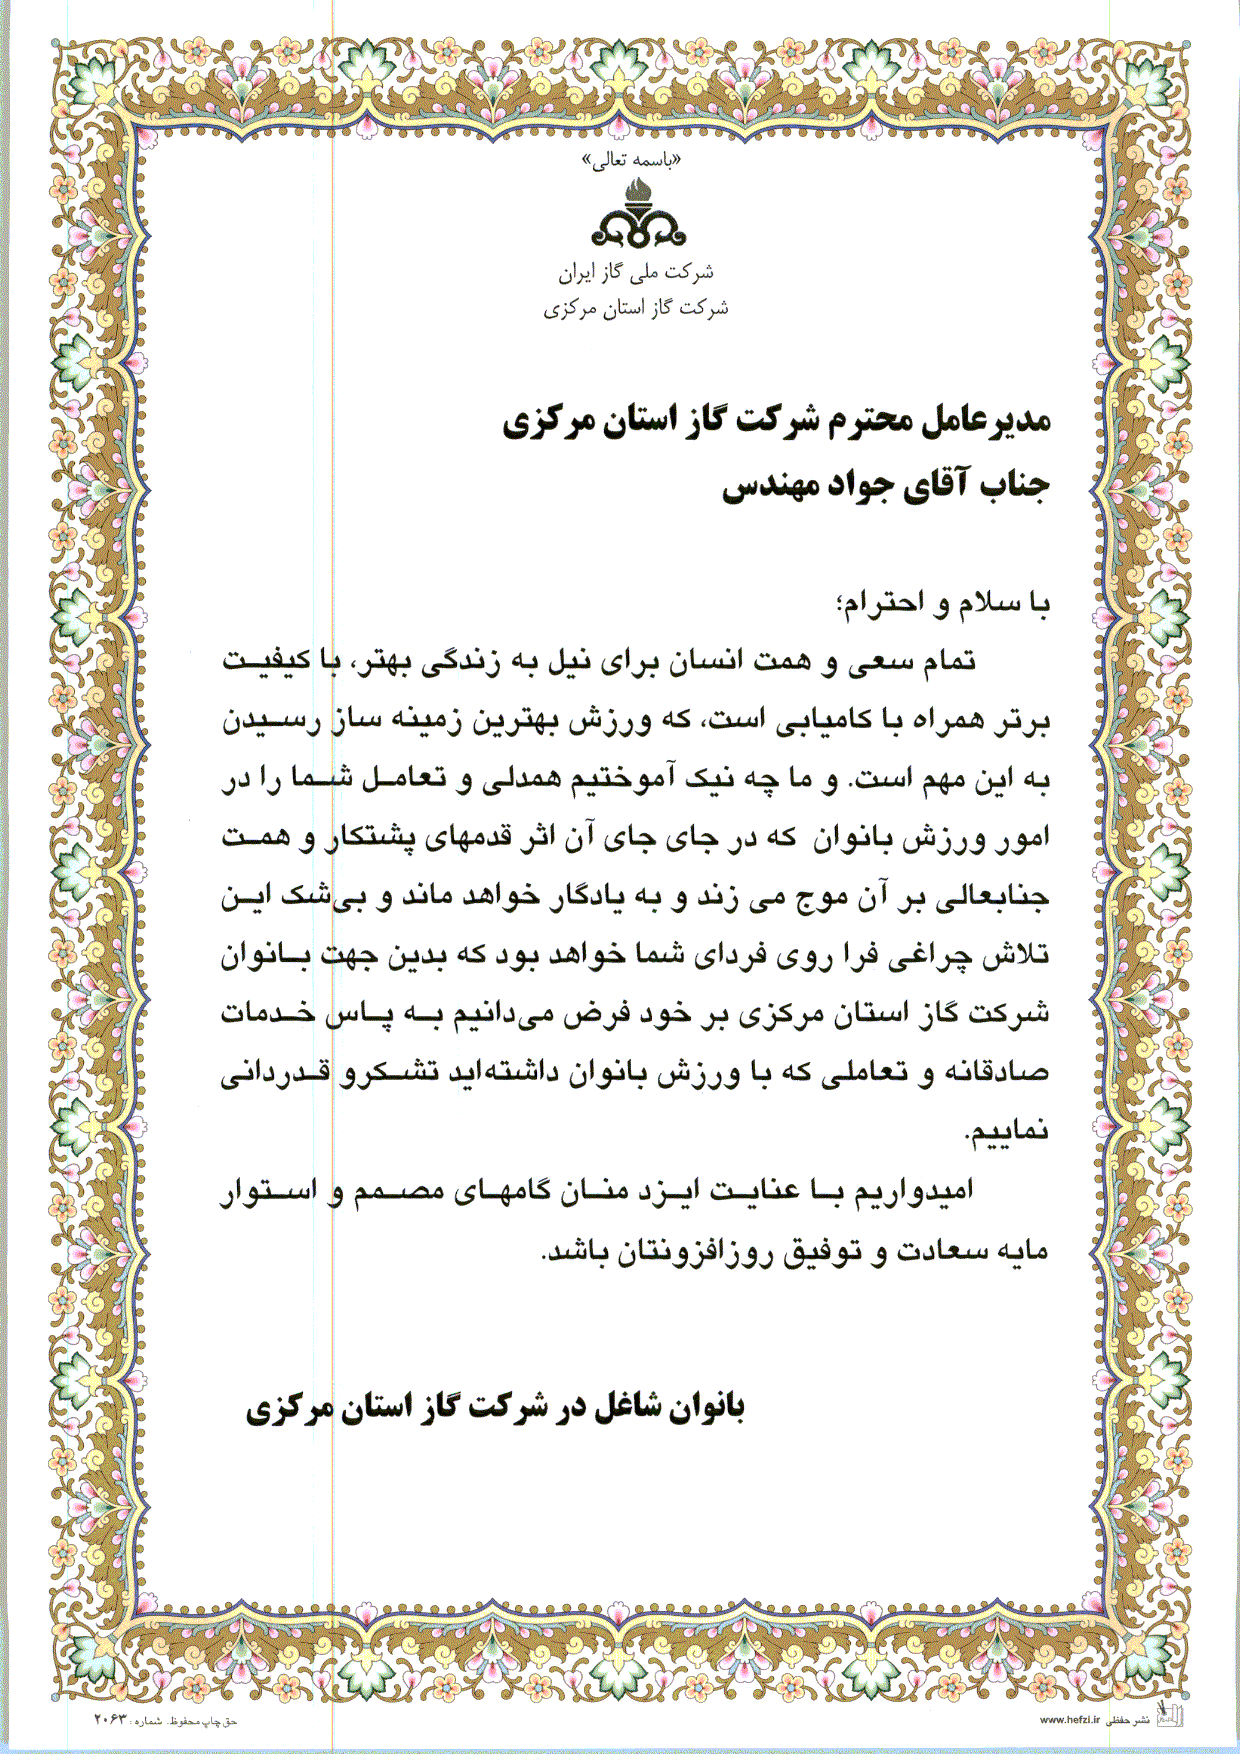 «باسمه تعالی»
شرکت ملی گاز ایران
شرکت گاز استان مرکزی
مدیرعامل محترم شرکت گاز استان مرکزی
جناب آقای جواد مهندس
با سلام و احترام؛
تمام سعی و همت انسان برای نیل به زندگی بهتر، با کیفیت
برتر همراه با کامیابی است، که ورزش بهترین زمینه ساز رسیدن
به این مهم است. و ما چه نیک آموختیم همدلی و تعامل شما را در
امور ورزش بانوان که در جای جای آن اثر قدمهای پشتکار و همت
جنابعالی بر آن موج می زند و به یادگار خواهد ماند و بی‌شک این
تلاش چراغی فرا روی فردای شما خواهد بود که بدین جهت بانوان
شرکت گاز استان مرکزی بر خود فرض می‌دانیم به پاس خدمات
صادقانه و تعاملی که با ورزش بانوان داشته‌اید تشکرو قدردانی
نماییم.
امیدواریم با عنایت ایزد منان گامهای مصمم و استوار
مایه سعادت و توفیق روزافزونتان باشد.
بانوان شاغل در شرکت گاز استان مرکزی
نشر حفظی www.hefzi.ir
حق چاپ محفوظ. شماره: ۲۰۶۳